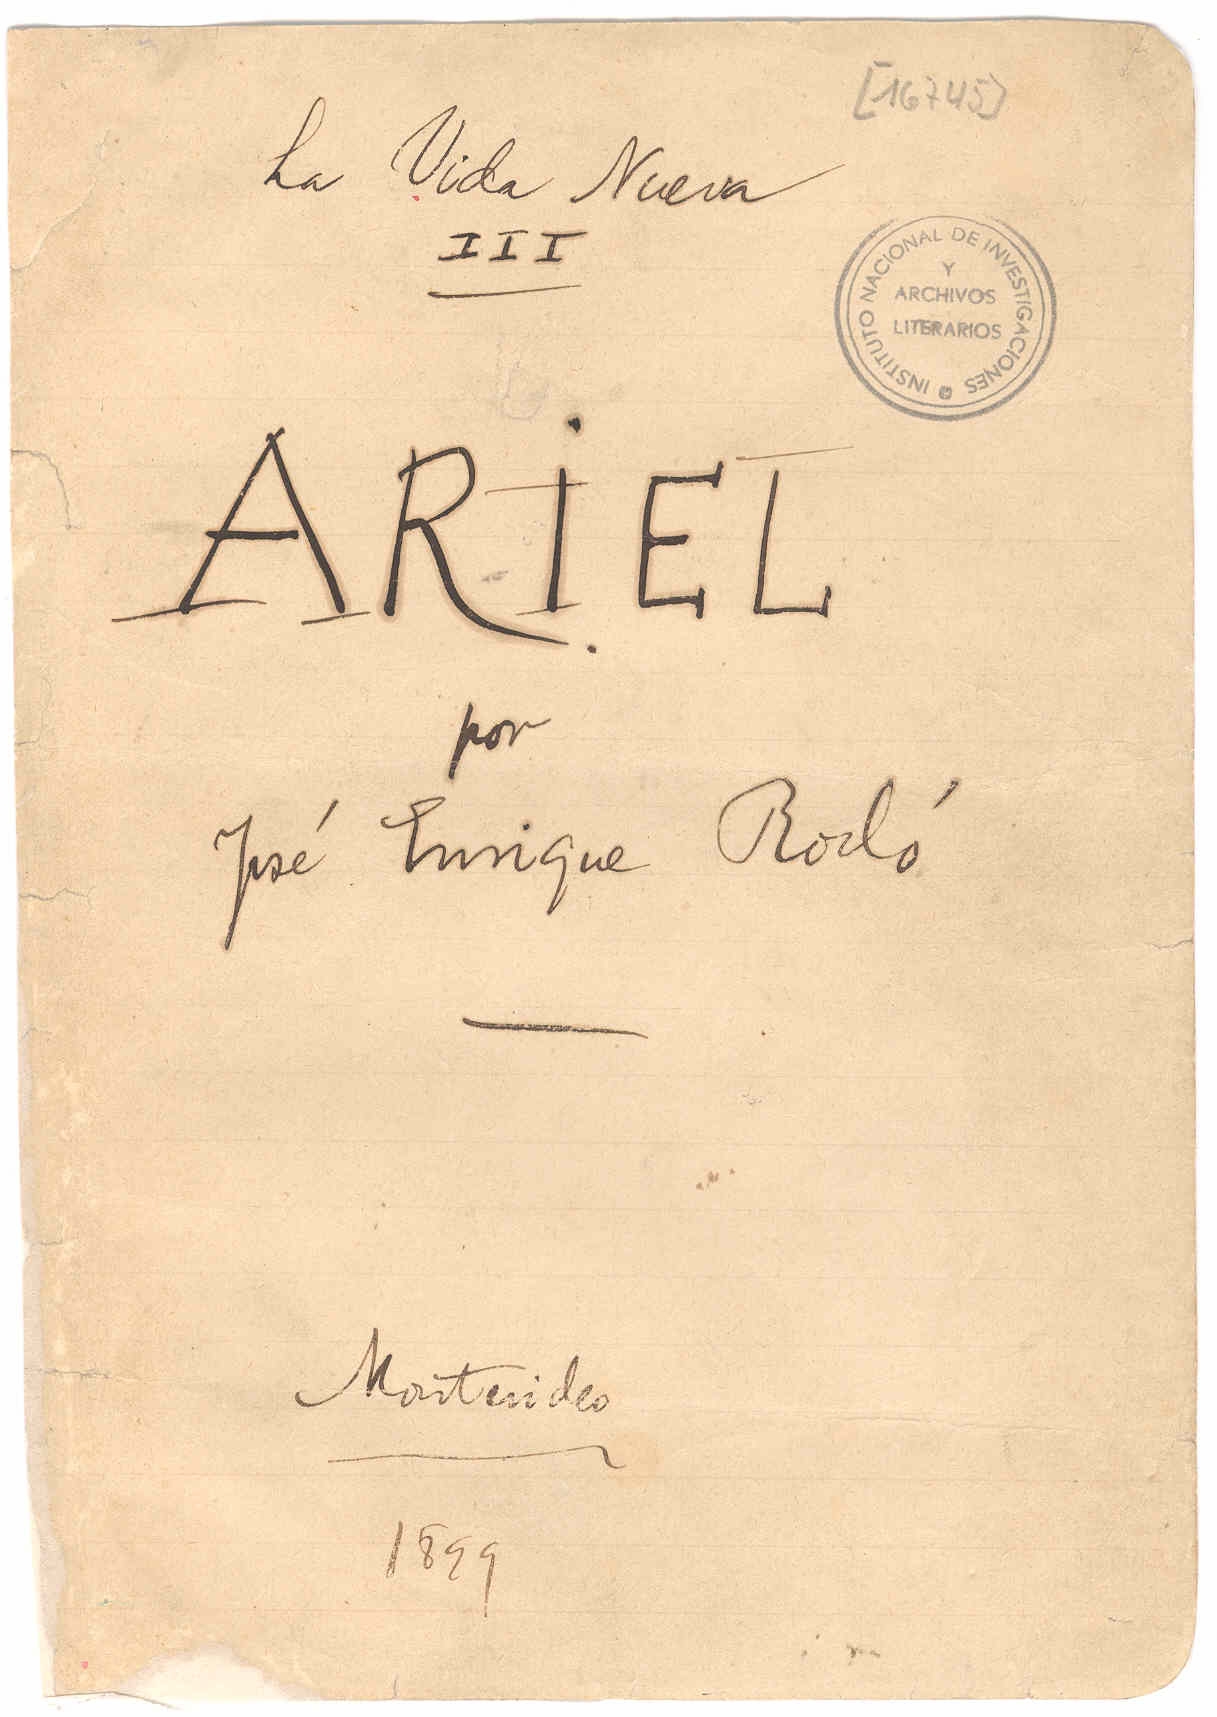 [16745]
La Vida Nueva
III
INSTITUTO NACIONAL DE INVESTIGACIONES
Y
ARCHIVOS
LITERARIOS
ARiEL
por
José Enrique Rodó
Montevideo
1899